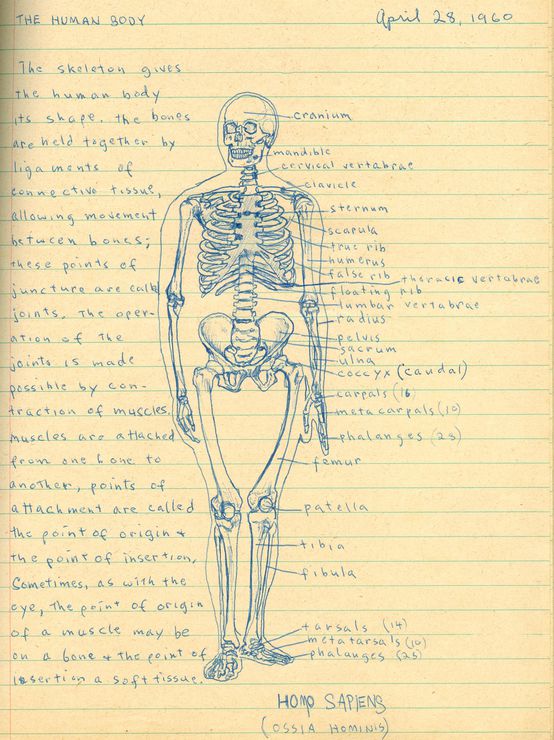 THE HUMAN BODY
April 28, 1960
The skeleton gives
the human body
its shape. the bones
are held together by
ligaments of
connective tissue,
allowing movement
between bones;
these points of
juncture are calld
joints. The oper-
ation of the
joints is made
possible by con-
traction of muscles.
muscles are attached
from one bone to
another, points of
attachment are called
the point of origin +
the point of insertion.
Sometimes, as with the
eye, the point of origin
of a muscle may be
on a bone + the point of
insertion a soft tissue.
cranium
mandible
cervical vertabrae
clavicle
sternum
scapula
true rib
humerus
false rib
thoracic vertabrae
floating rib
lumbar vertabrae
radius
pelvis
sacrum
ulna
coccyx (caudal)
carpals (16
metacarpals (10)
phalanges (28)
femur
patella
tibia
fibula
tarsals (14)
metatarsals (10)
phalanges (28)
HOMO SAPIENS
(OSSIA HOMINIS)